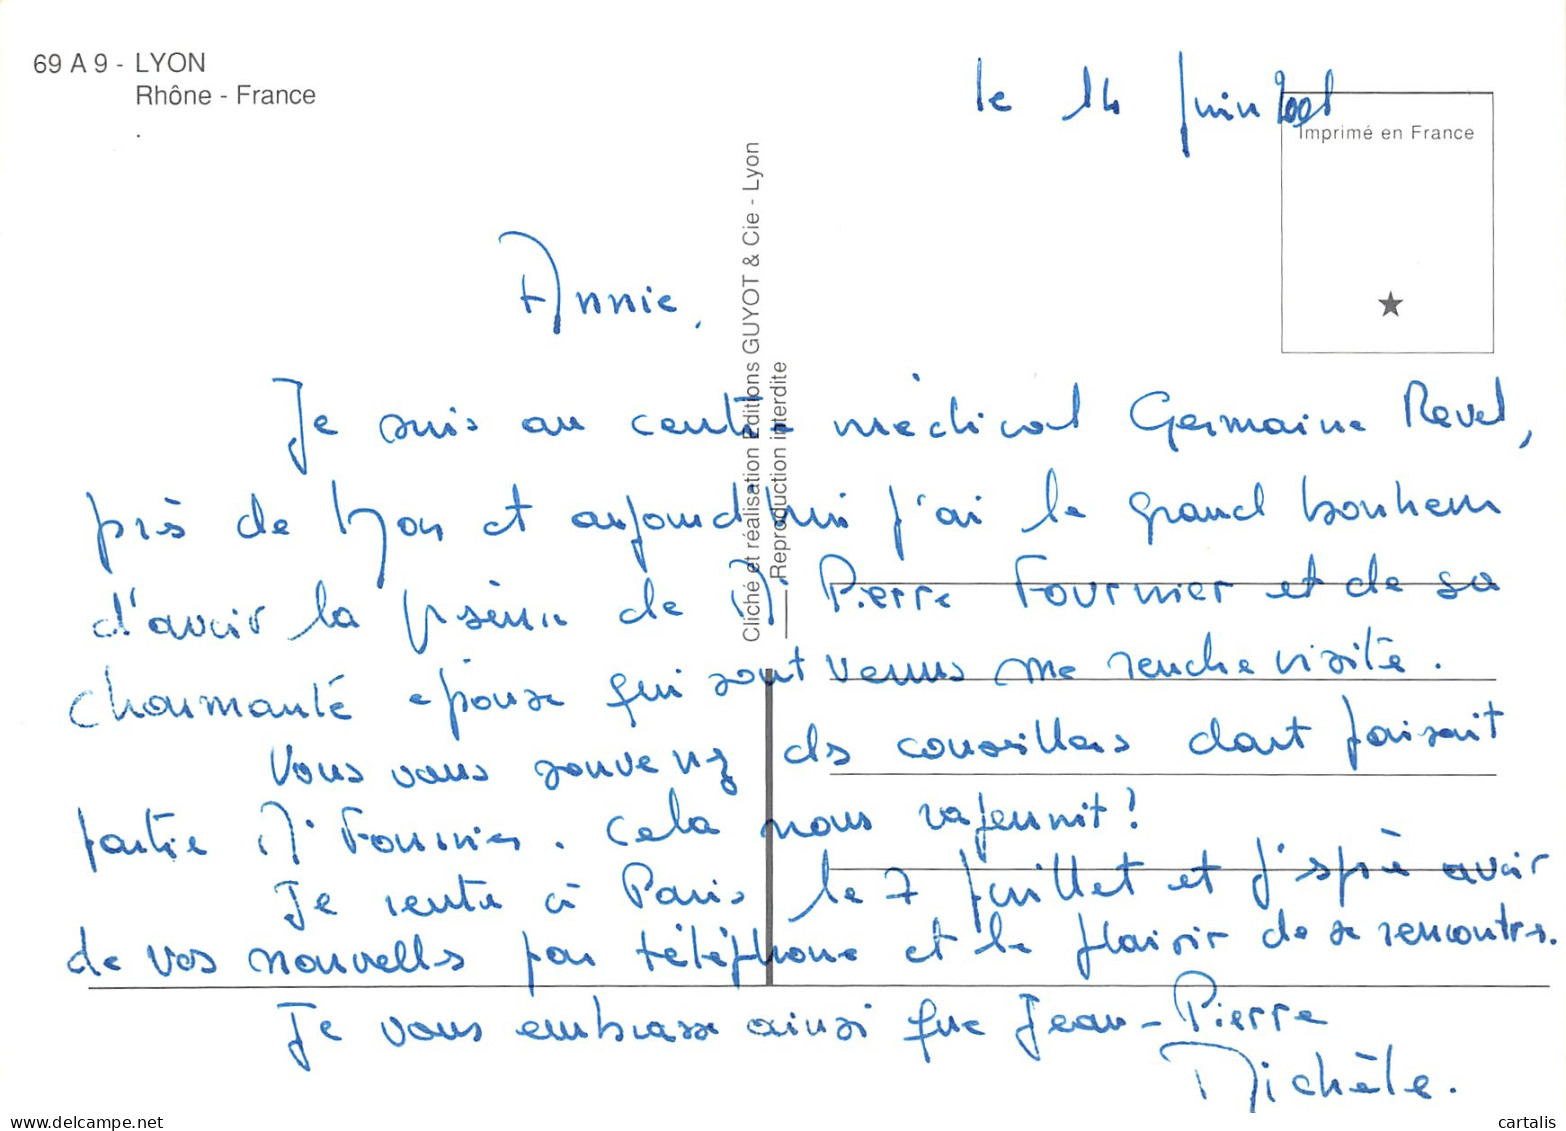 69 A 9 - LYON
Rhône - France
le 14 Juin 2001
Imprimé en France
Cliché et réalisation Editions GUYOT & Cie - Lyon
Reproduction interdite
Annie,
Je suis au centre médical Germaine Revel,
près de Lyon et aujourd'hui j'ai le grand bonheur
d'avoir la présence de Mr Pierre Fournier et de sa
charmante épouse qui sont venus me rendre visite.
Vous vous souvenez des conseillers dont faisait
partie Mr Fournier. Cela nous rajeunit!
Je rentre à Paris le 7 Juillet et j'espère avoir
de vos nouvelles par téléphone et le plaisir de se rencontrer.
Je vous embrasse ainsi que Jean-Pierre
Michèle.
www.delcampe.net
cartalis